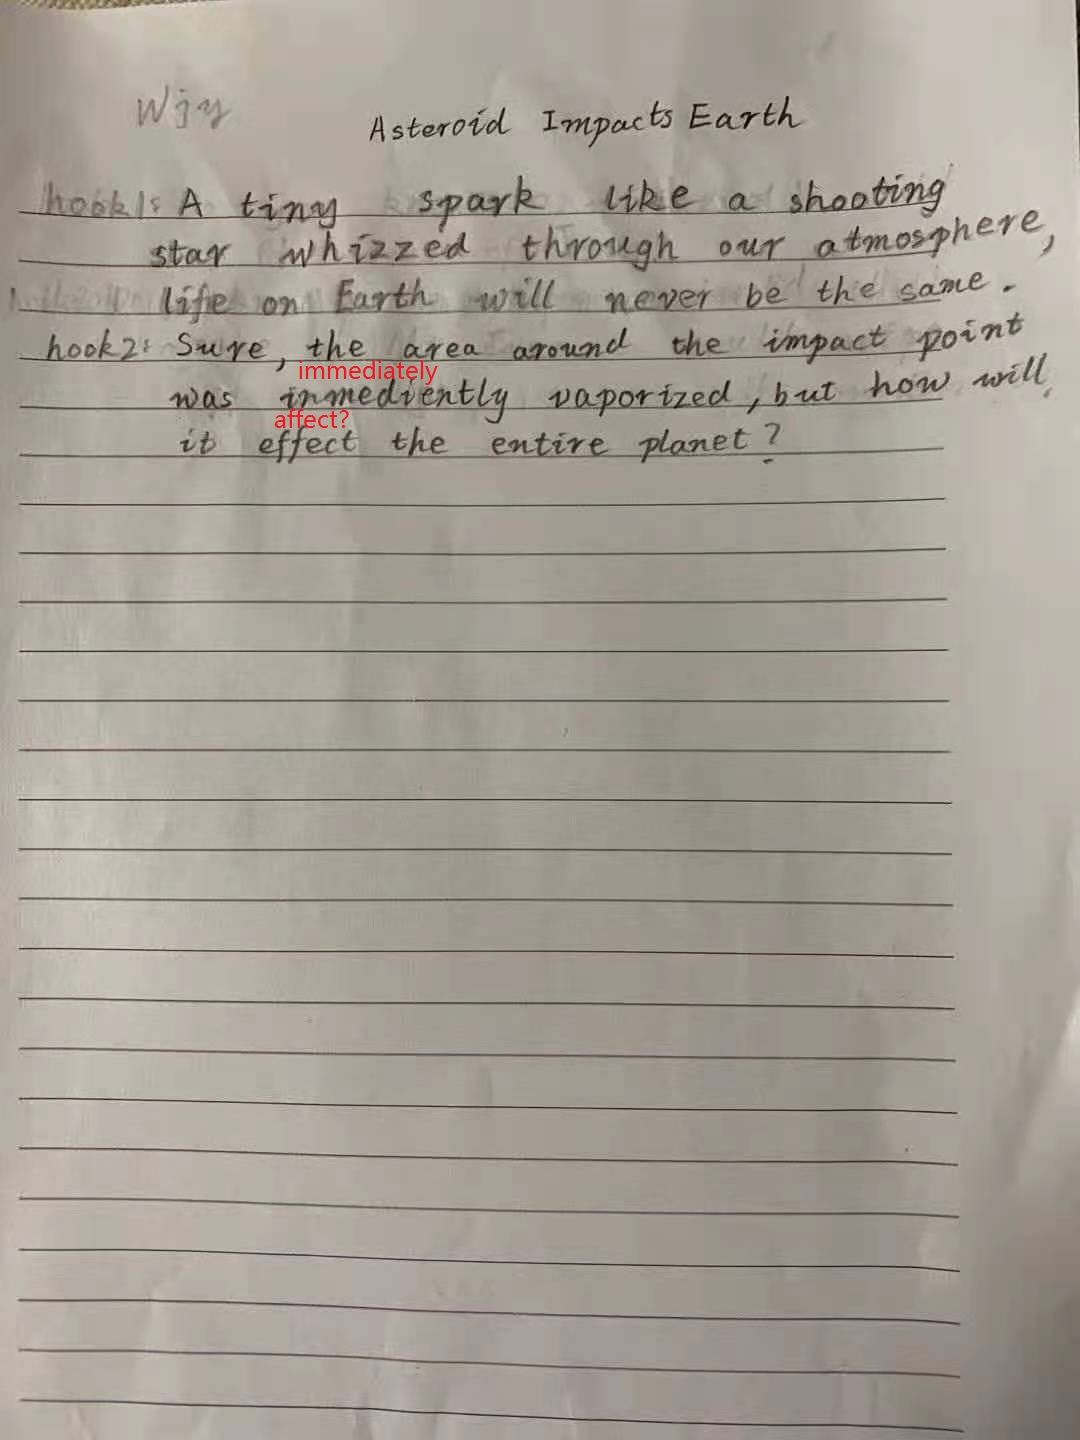 Wjy
Asteroid Impacts Earth
hook1: A tiny spark like a shooting
star whizzed through our atmosphere,
life on Earth will never be the same.
hook2: Sure, the area around the impact point
immediately
was inmediently vaporized, but how will
affect?
it effect the entire planet?